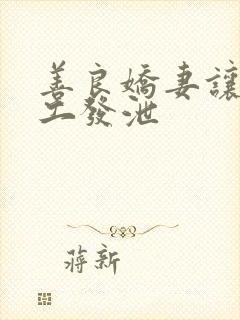 善良嬌妻讓
工發泄
蔣新